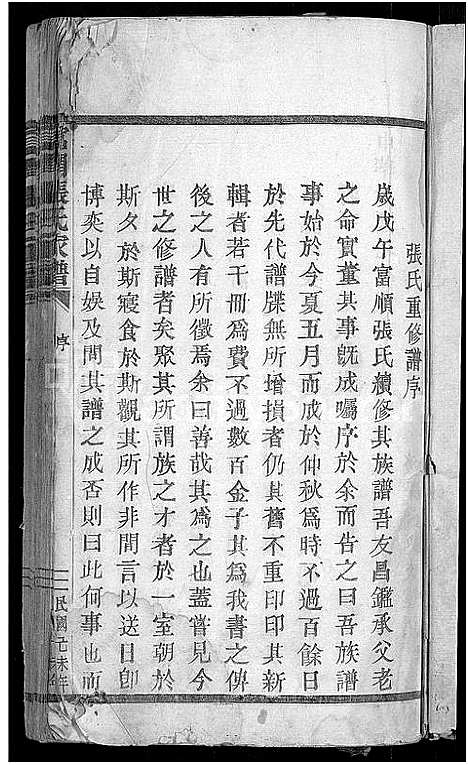 張氏重修譜序
歲戊午富順張氏續修其族譜吾友昌鑑承父老
之命實董其事旣成囑序於余而告之曰吾族譜
事始於今夏五月而成於仲秋為時不過百餘日
於先代譜牒無所增損者仍其舊不重印印其新
輯者若干冊為費不過數百金子其為我書之俾
後之人有所徵焉余曰善哉其為之也蓋嘗見今
世之修譜者矣聚其所謂族之才者於一室朝於
斯夕於斯寢食於斯觀其所作非閒言以送日卽
博奕以自娛及問其譜之成否則曰此何事也而
張氏家譜
序
民國己未年